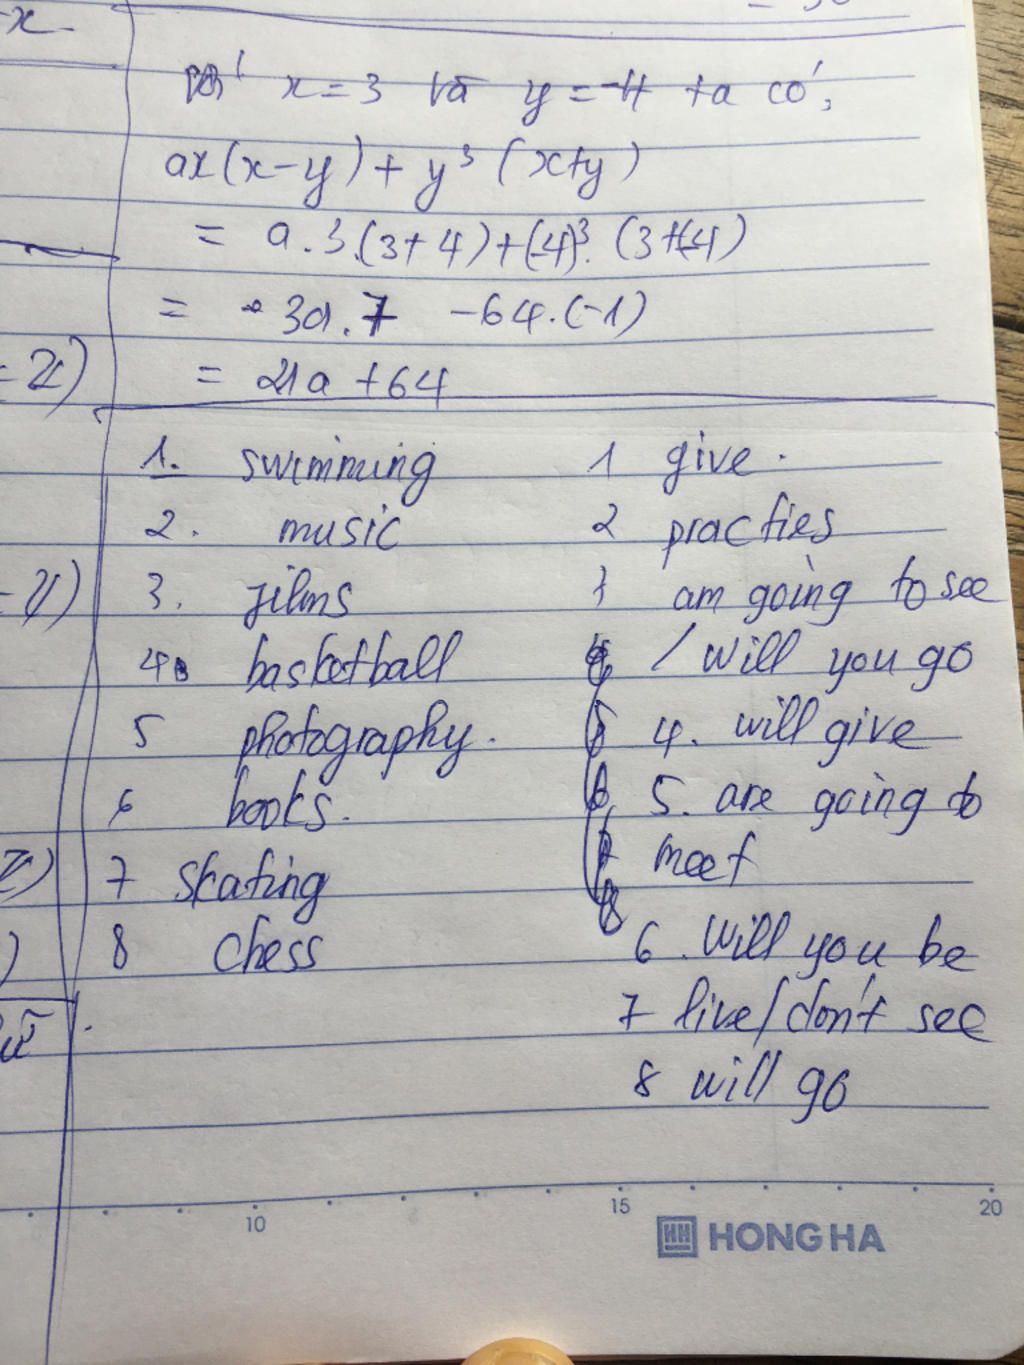 -x
Với x = 3 và y = -4 ta có;
ax(x-y) + y³ (x+y)
= a.3.(3+4)+(-4)³. (3+(-4)
= 3a.7 -64.(-1)
= 21a +64
1. swimming
2. music
3. films
4. basketball
5 photography.
6 books.
7 skating
8 chess
1 give.
2 practies
3 am going to see
/ will you go
4. will give
5. are going to
meet
6. Will you be
7 live/don't see
8 will go
10 15 20
HONG HA